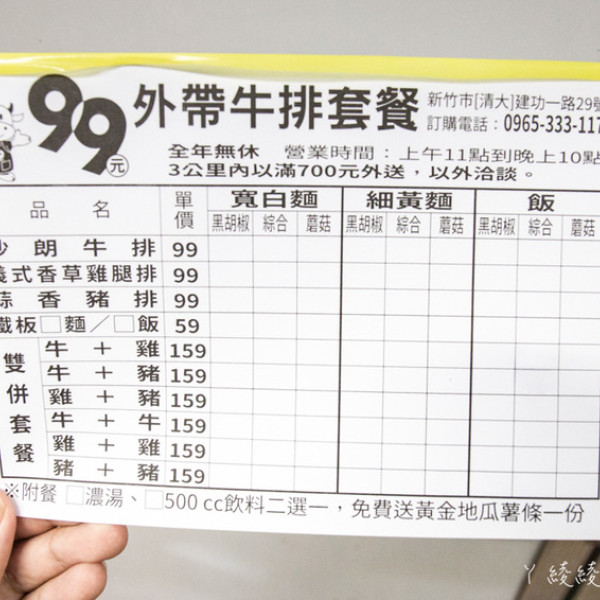 99元 外帶牛排套餐 新竹市[清大]建功一路29號
訂購電話：0965-333-117
全年無休 營業時間：上午11點到晚上10點
3公里內以滿700元外送，以外洽談。
品名 單價 寬白麵 細黃麵 飯
黑胡椒 綜合 蘑菇 黑胡椒 綜合 蘑菇 黑胡椒 綜合 蘑菇
沙朗牛排 99
義式香草雞腿排 99
蒜香豬排 99
鐵板□麵／□飯 59
雙併套餐
牛＋雞 159
牛＋豬 159
雞＋豬 159
牛＋牛 159
雞＋雞 159
豬＋豬 159
※附餐 □濃湯、□500 cc飲料二選一，免費送黃金地瓜薯條一份
ㄚ綾綾